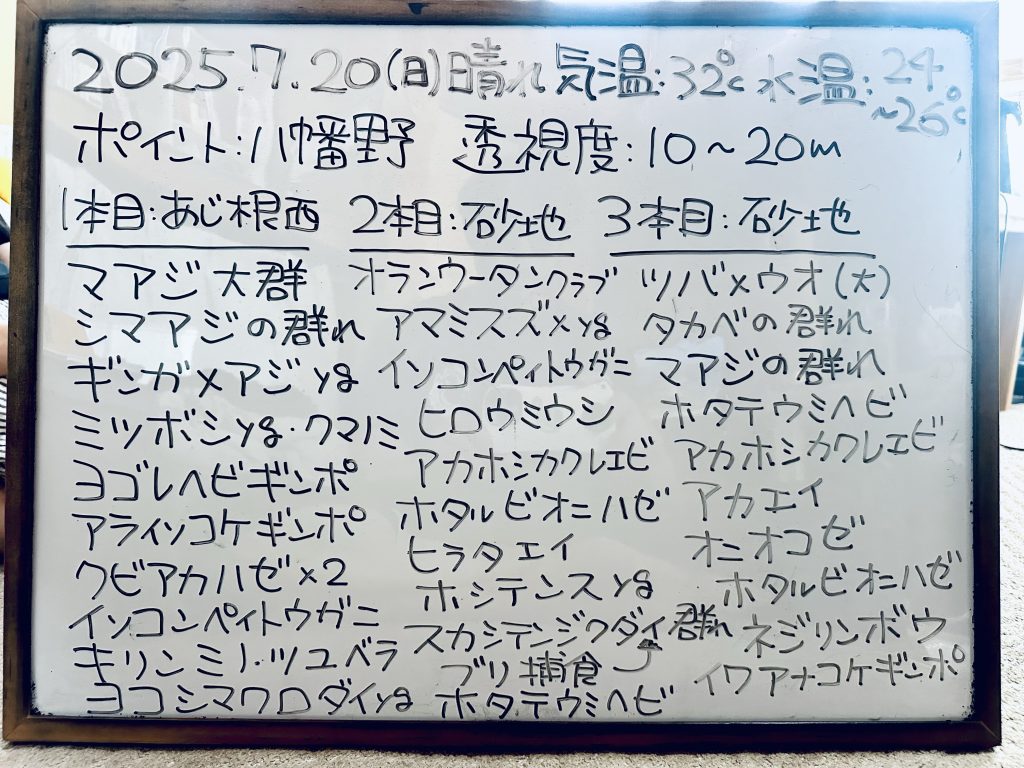 2025.7.20(日)晴れ 気温:32℃ 水温:24~26℃
ポイント:八幡野 透視度:10~20m
1本目:あじ根西
マアジ大群
シマアジの群れ
ギンガメアジyg
ミツボシyg・クマノミ
ヨゴレヘビギンポ
アライソコケギンポ
クビアカハゼ×2
イソコンペイトウガニ
キリンミノ・ツユベラ
ヨコシマクロダイyg
2本目:砂地
オランウータンクラブ
アマミスズメyg
イソコンペイトウガニ
ヒロウミウシ
アカホシカクレエビ
ホタルビオニハゼ
ヒラタエイ
ホシテンスyg
スカシテンジクダイ群れ
ブリ捕食
ホタテウミヘビ
3本目:砂地
ツバメウオ(大)
タカベの群れ
マアジの群れ
ホタテウミヘビ
アカホシカクレエビ
アカエイ
オニオコゼ
ホタルビオニハゼ
ネジリンボウ
イワアナコケギンポ